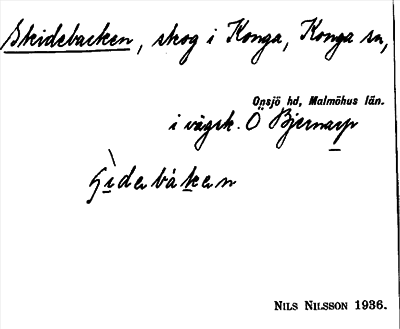 Skidebacken, skog i Konga, Konga sn,
Onsjö hd, Malmöhus län.
i vägsk. Ö Bjernarp
NILS NILSSON 1936.